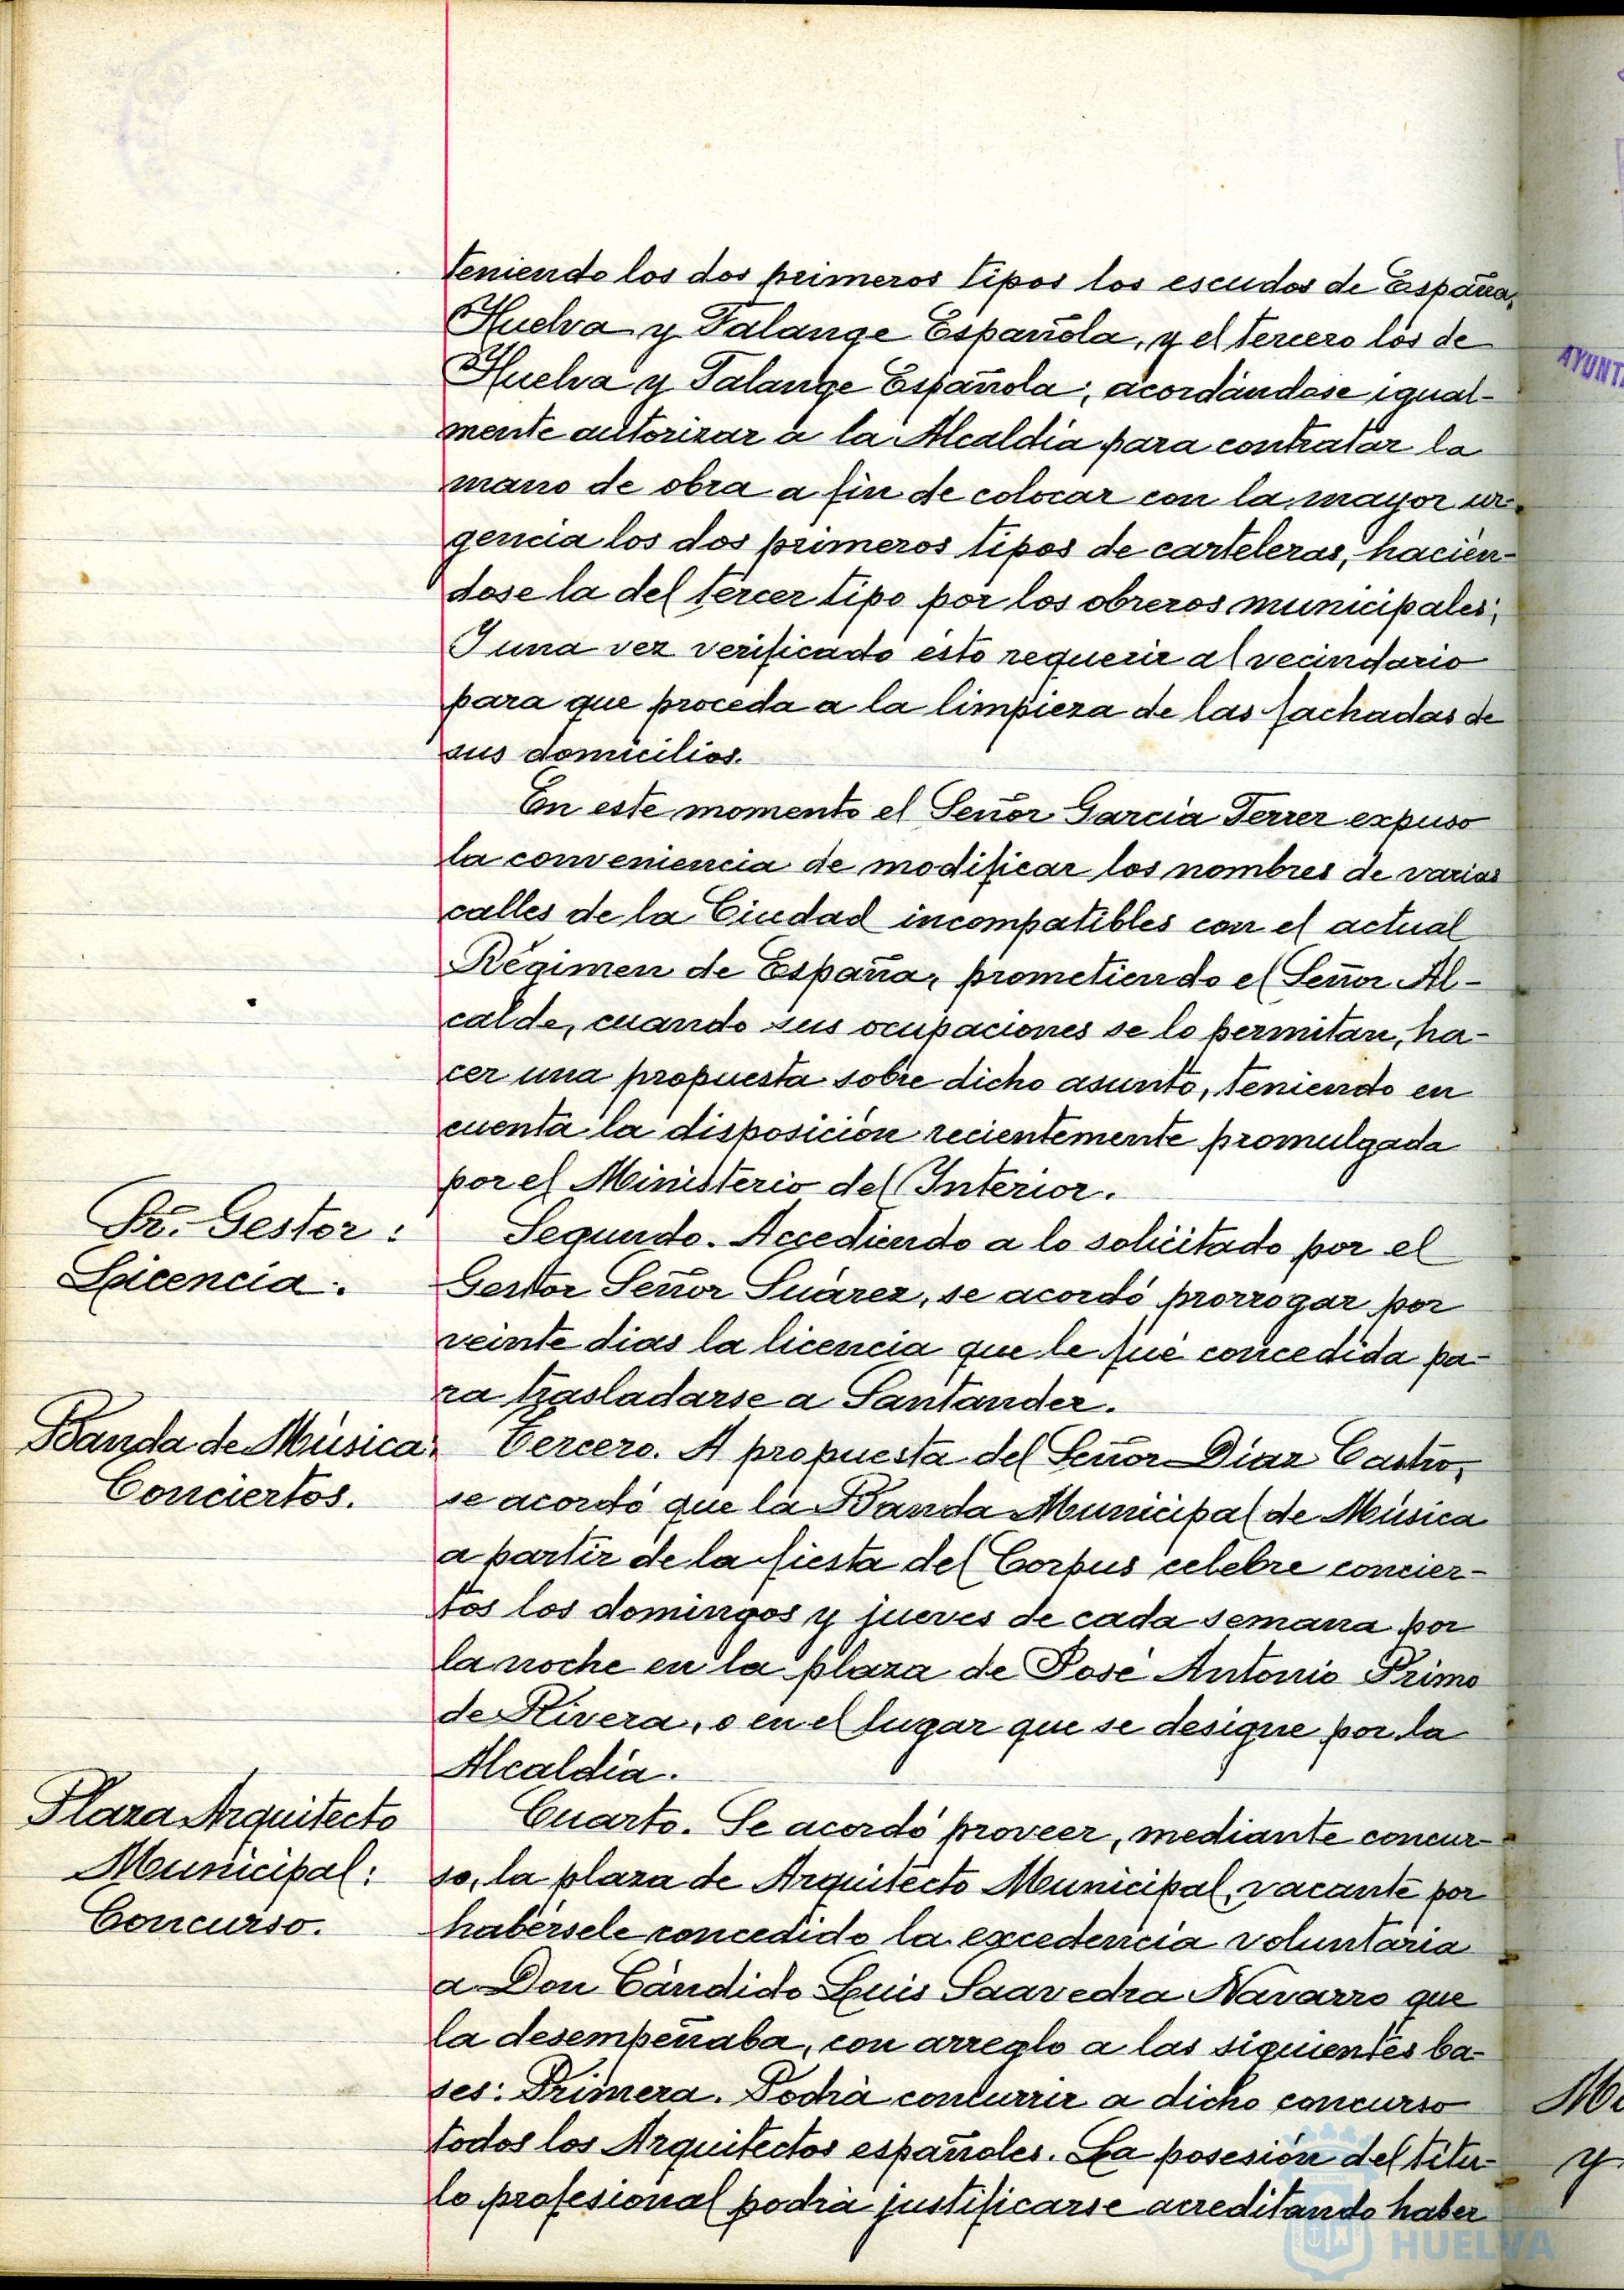 teniendo los dos primeros tipos los escudos de España,
Huelva y Falange Española, y el tercero los de
Huelva y Falange Española; acordándose igual-
mente autorizar a la Alcaldía para contratar la
mano de obra a fin de colocar con la mayor ur-
gencia los dos primeros tipos de carteleras, hacién-
dose la del tercer tipo por los obreros municipales;
Y una vez verificado ésto requerir al vecindario
para que proceda a la limpieza de las fachadas de
sus domicilios.
En este momento el Señor García Ferrer expuso
la conveniencia de modificar los nombres de varias
calles de la Ciudad incompatibles con el actual
Régimen de España, prometiendo el Señor Al-
calde, cuando sus ocupaciones se lo permitan, ha-
cer una propuesta sobre dicho asunto, teniendo en
cuenta la disposición recientemente promulgada
por el Ministerio del Interior.
Sr. Gestor:
Licencia.
Segundo. Accediendo a lo solicitado por el
Gestor Señor Suárez, se acordó prorrogar por
veinte dias la licencia que le fué concedida pa-
ra trasladarse a Santander.
Banda de Música.
Conciertos.
Tercero. A propuesta del Señor Díaz Castro,
se acordó que la Banda Municipal de Música
a partir de la fiesta del Corpus celebre concier-
tos los domingos y jueves de cada semana por
la noche en la plaza de José Antonio Primo
de Rivera, o en el lugar que se designe por la
Alcaldía.
Plaza Arquitecto
Municipal:
Concurso.
Cuarto. Se acordó proveer, mediante concur-
so, la plaza de Arquitecto Municipal, vacante por
habérsele concedido la excedencia voluntaria
a Don Cándido Luis Saavedra Navarro que
la desempeñaba, con arreglo a las siguientes ba-
ses: Primera. Podrá concurrir a dicho concurso
todos los Arquitectos españoles. La posesión del títu-
lo profesional podrá justificarse acreditando haber
AYUNT
M
y
HUELVA